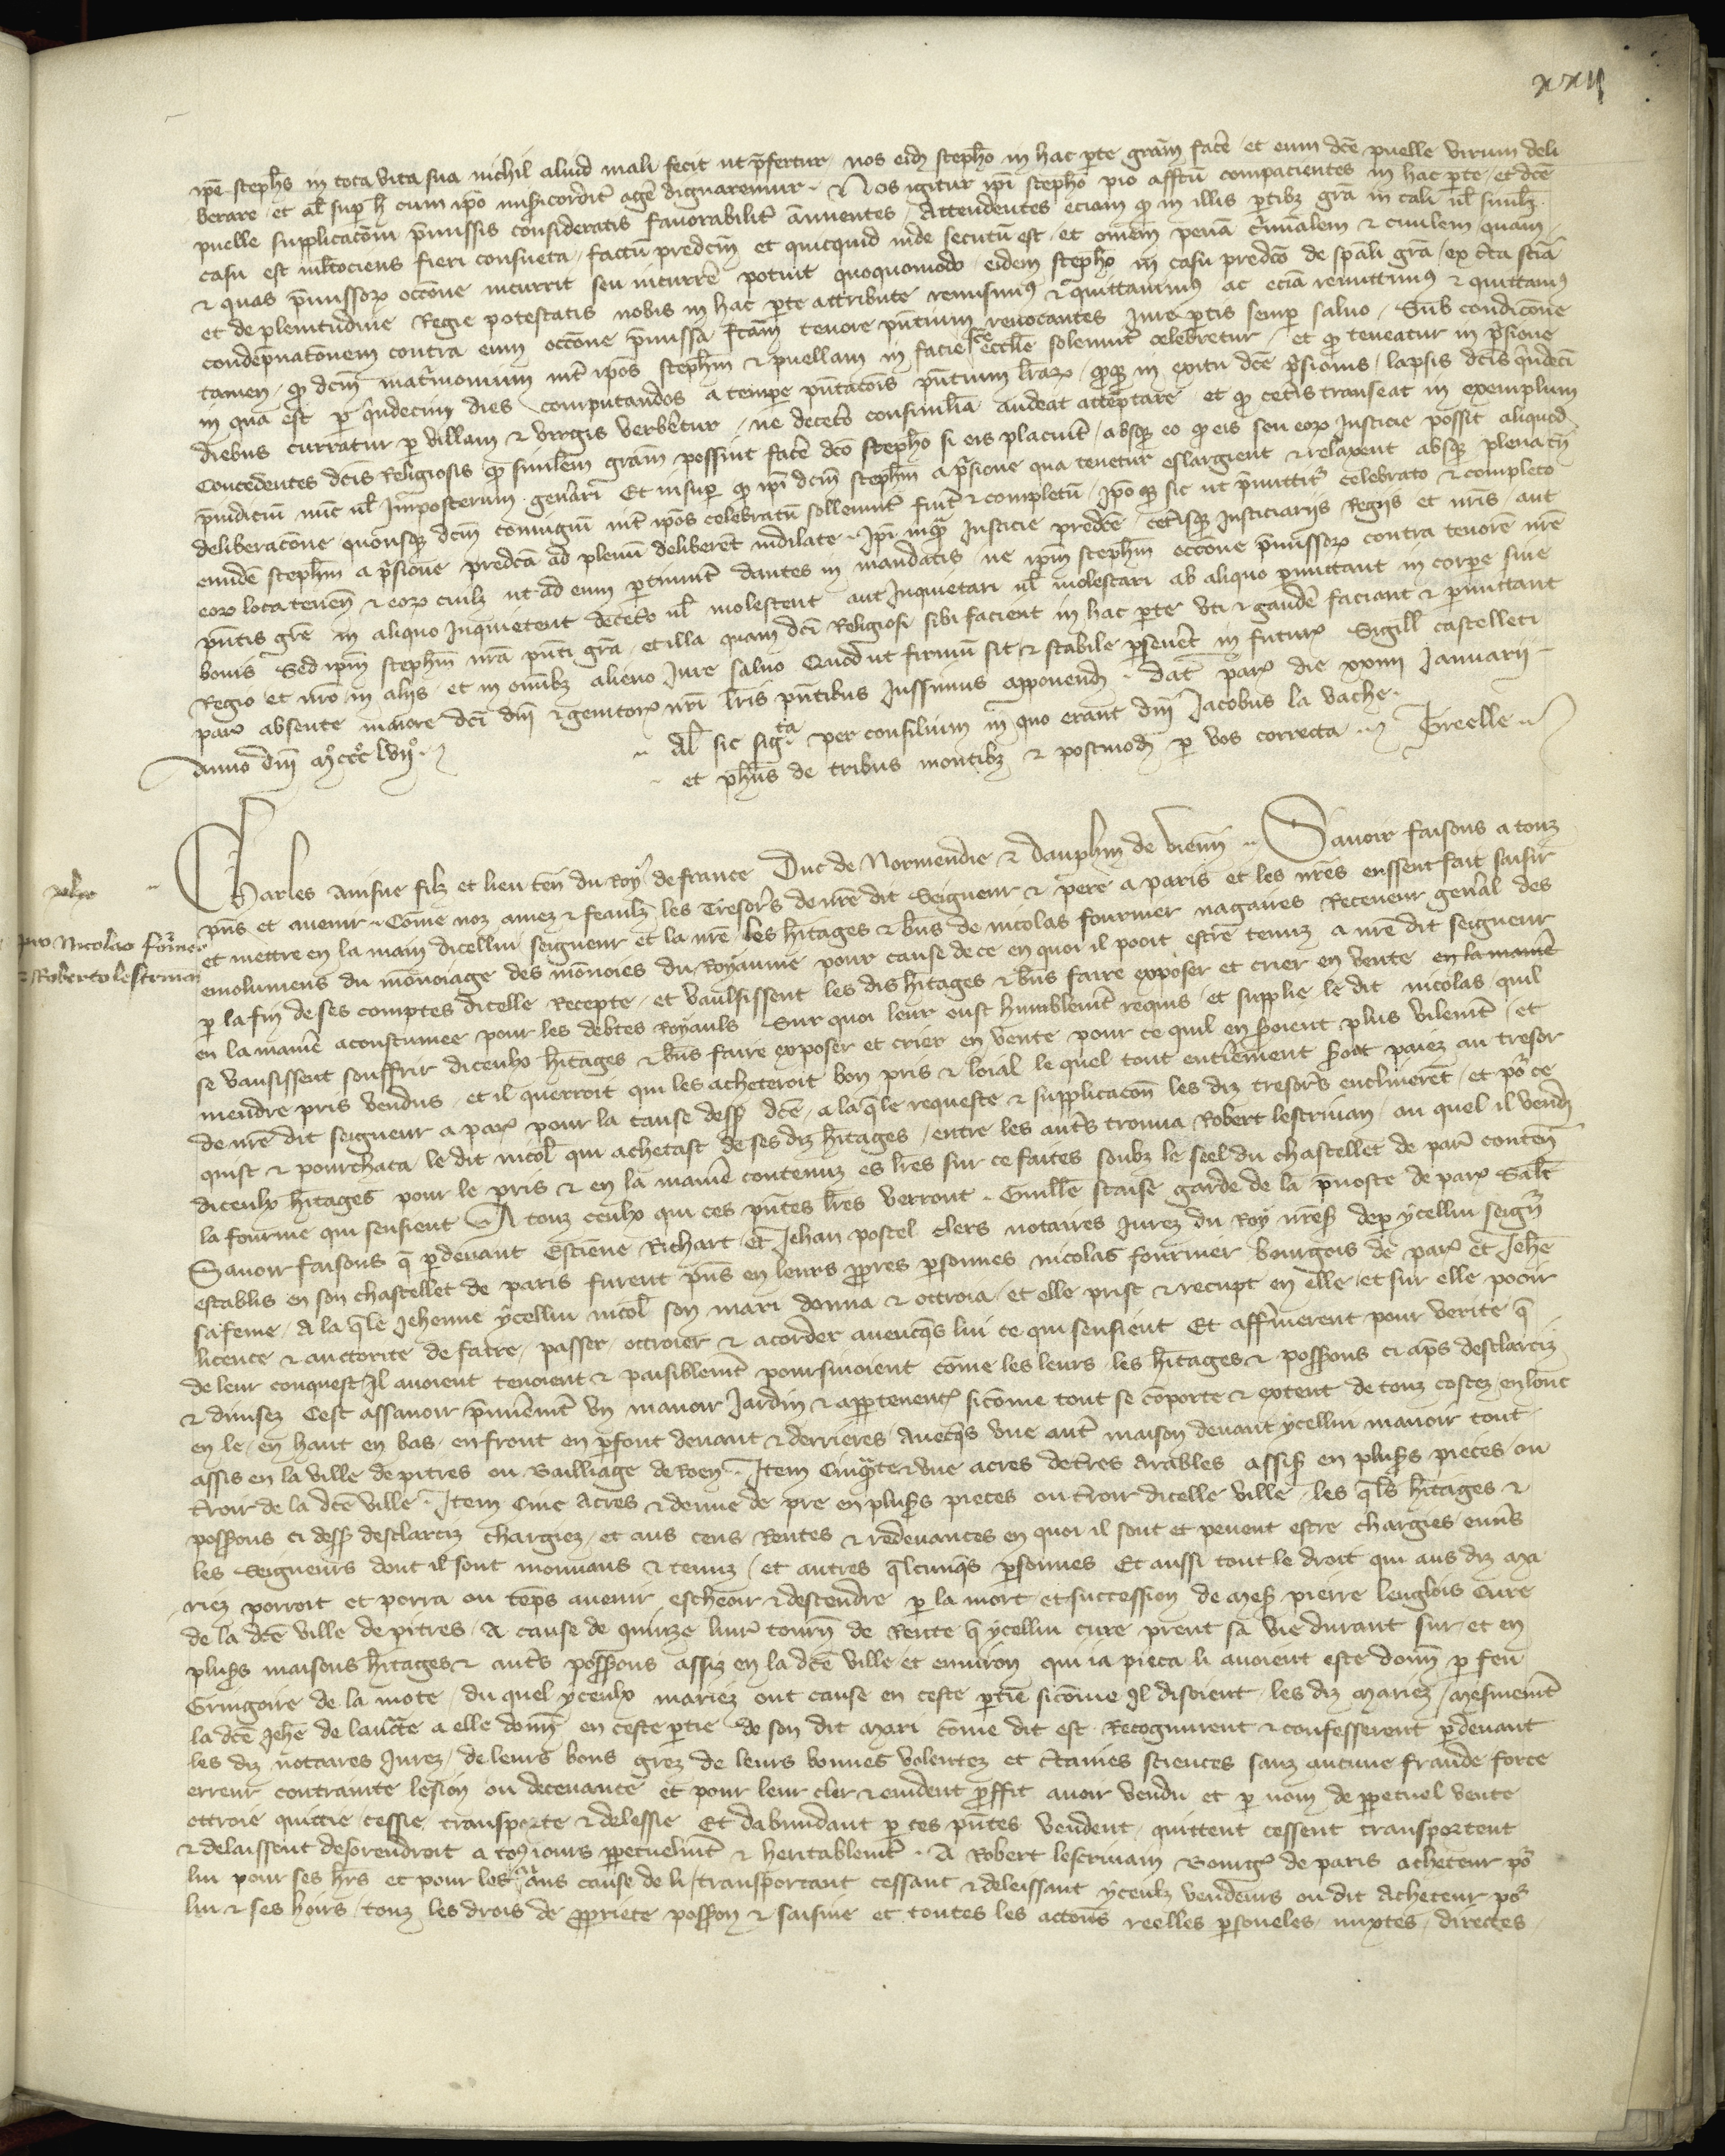 xxii
ipe stephs in tota vita sua nichil aliud mali fecit ut pfertur nos eid stepho in hac pte gram face et eum dce puelle virum deli
berare et al sup h cum ipo misicordit age dignaremur Nos igitur ipi stepho pio affctu compacientes in hac pte et dce
puelle supplicacoi pmissis consideratis favorabilit annuentes Attendentes eciam q in illis ptibz gra in tali ul simili
casu est mltociens fieri consueta factu predcm et quicquid inde secutu est et omem pena criminalem & civilem quam
& quas pmissor occone incurrit seu incurre potuit quoquomodo eidem stepho in casu predco de spali gra ex certa scia
et de plenitudine Regie potestatis nobis in hac pte attribute remisimus & quittavimus ac ecia remittimus & quittamus
condepnatonem contra eum occone pmissa fcam tenore pntium revocantes iure ptis semp salvo Sub condicone
tamen q dcm matrimonium int ipos stephm & puellam in facie sce eccle solemnit celebretur et q teneatur in psione
in qua est p quindecim dies computandos a tempe pntacois pntium lrar qq in exitu dce prisionis lapsis dcis quindeci
diebus curratur p villam & virgis verberetur ne deceto consimilia audeat attemptare et q cetis transeat in exemplum
Concedentes dcis Religiosis q similem gram possint face dco stepho si eis placuit absq eo q eis seu eor Iusticie possit aliquod
piudicium nunc ul Imposterum generari Et insup q ipi dcm stephm a prisione qua tenetur eslargient & relaxent absq plenaria
deliberacone quousq dcm coniugium int ipos celebratu sollemnit fuit & completu Ipo q sic ut pmittitur celebrato & completo
eundem stephm a prisione predca ad plenu deliberet indilate Ipi inq Iusticie predce cetisq Iusticiariis Regiis et nris aut
eor loca tenen & eor cuilz ut ad eum ptinuit dantes in mandatis ne ipm stephm occone pmissor contra tenore nre
pntis gre in aliquo Inquietent deceto ul molestent aut Inquietari ul molestari ab aliquo pmittant in corpe sive
bonis Sed ipm stephm nra pnti gra et illa quam dci Religiosi sibi facient in hac pte uti & gaude faciant & pmittant
Regio et nro in aliis et in omibz alieno Iure salvo Quod ut firmu sit & stabile pseveret in futur Sigill castelleti
par absente maiore dci dni & genitoris nri lris pntibus Iussimus apponend Dat par die xxiiii Januarii
Anno dni mo ccco lviio
Al sic sigta per consilium in quo erant dni Jacobus la vache
et phus de tribus montibz & postmod p vos correcta Greelle
Charles ainsne filz et lieu ten du Roy de france Duc de Normendie & dauphin de vienn Savoir faisons a touz
pns et avenir Come noz amez & feaulz les Tresors de nre dit Seigneur & pere a paris et les nres eussent fait saisir
et mettre en la main dicellui seigneur et la nre les hitages & bns de nicolas fournier nagaires Receveur genal des
pro Nicolao fornier
& Roberto lescrivan
emolumens du monoiage des monoies du Royaume pour cause de ce en quoi il pooit estre tenuz a nre dit seigneur
p la fin de ses comptes dicelle Recepte et vaulsissent les dis hitages & bns faire exposer et crier en vente en la manie
en la manie acoustumee pour les debtes Royauls Sur quoi leur eust humblemt requis et supplie le dit nicolas quil
se vausissent souffrir diceulx hitages & bns faire exposer et crier en vente pour ce quil en seroient plus vilemt et
mendre pris vendus et il querroit qui les acheteroit bon pris & loial le quel tout entierement seroit paiez au tresor
de nre dit seigneur a par pour la cause dess dce a la qle requeste & supplicacon les diz tresors enclinerent et por ce
quist & pourchata le dit nicol qui achetast de ses diz hitages entre les auts trouva Robert lescrivan au quel il vend
diceulx hitages pour le pris & en la manie contenuz es lres sur ce faites soubz le seel du chastellet de par conten
la fourme qui sensient A touz ceulx qui ces pntes lres verront Guille staise garde de la pvoste de par Salt
Savoir faisons q pdevant Estiene Richart et Jehan postel clers notaires Jurez du Roy nres dep ycellui seigr
establis en son chastellet de paris furent pns en leurs ppres psonnes nicolas fournier bourgois de par et Jehe
sa feme A la qle Jehenne ycellui nicol son mari donna & ottroia et elle prist & recupt en elle et sur elle pooir
licence & auctorite de faire passer ottroier & acorder avencqs lui ce qui sensient Et affirmerent pour verite q
de leur conquest Il avoient tenoient & paisiblemt poursivoient come les leurs les hitages & possions ci aps desclarciz
& divisez Cest assavoir pmieremt un manoir Jardin & appertenens sicome tout se comporte & extent de touz costez en lonc
en le en haut en bas en front en pfont devant & derrieres Avecqs une autr maison devant ycellui manoir tout
assis en la ville de pitres ou Bailliage de Roen Item Cinqte & une acres de tres arables assis en plusrs pieces ou
troir de la dce ville Item Cinc acres & demie de pre en plusrs pieces ou troir dicelle ville les qls hitages &
possions ci dess desclarciz chargiez et aus cens Rentes & redevances en quoi il sont et pevent estre chargies envs
les Seigneurs dont il sont mouvans & tenuz et autres qlcunqs psonnes Et aussi tout le droit qui aus diz ma
riez porroit et porra ou temps avenir escheoir & descendre p la mort et succession de mess pierre lenglois Cure
de la dce ville de pitres A cause de quinze livr tourn de Rente q ycellui cure prent sa vie durant sur et en
plusrs maisons hitages & auts possions assiz en la dce ville et environ qui ia pieca li avoient este donn p feu
Gringoire de la mote du quel yceulx mariez ont cause en ceste ptie sicome Il disoient les diz mariez mesmemt
la dce Jehe de lauctte a elle donn en ceste ptie de son dit mari come dit est Recognurent & confesserent pdevant
les diz notaires Jurez de leurs bons grez de leurs bonnes volentez et ctaines sciences sanz aucune fraude force
erreur contrainte lesion ou decevance et pour leur cler & evident pffit avoir vendu et p nom de ppetuel vente
ottroie quitie cessie transporte & delessie Et dabundant p ces pntes vendent quittent cessent transportent
& delaissent desorendroit a tousiours ppetuelmt & heritablemt A Robert lescrivain Bourgs de paris acheteur por
lui pour ses hrs et pour les aians cause de li transportant cessant & delaissant yceulz vendeurs ou dit Acheteur por
lui & ses hoirs touz les drois de ppriete possion & saisine et toutes les actons reelles psoneles mixtes directes